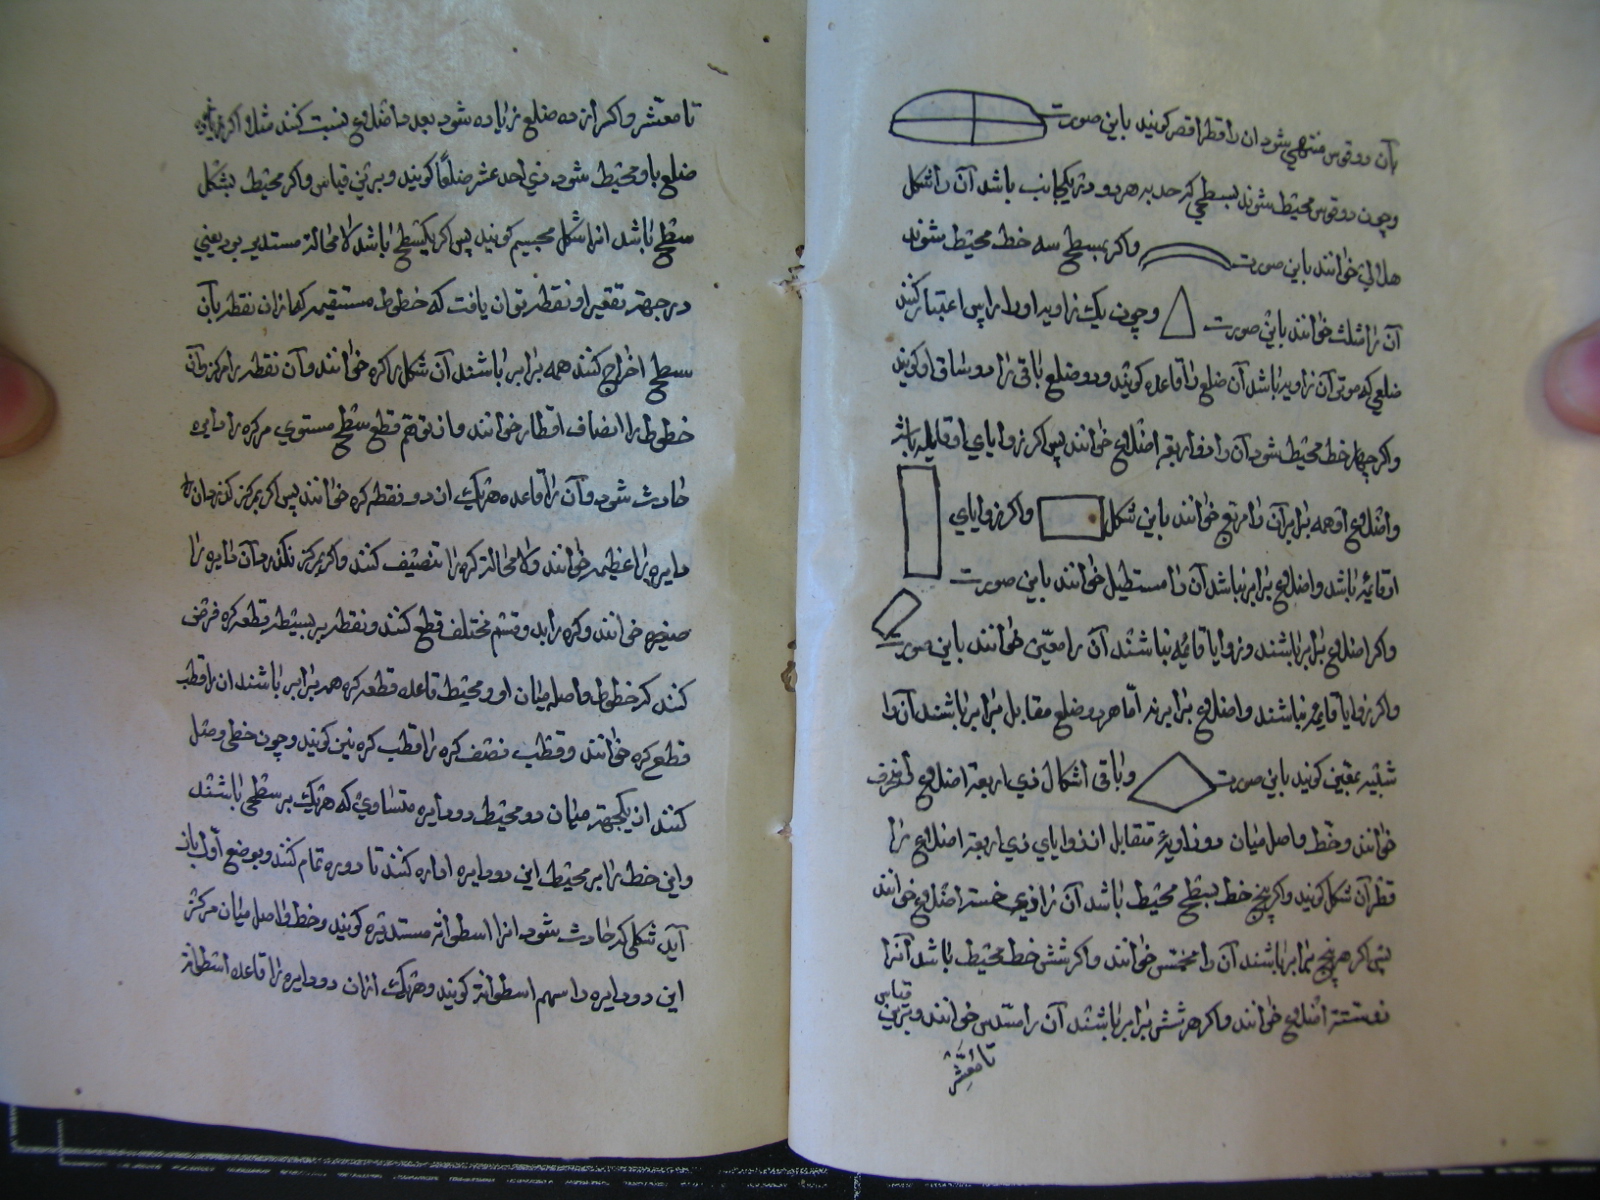 بآن دو قوس منتهی شود آن را قطر اقصر گویند باین صورت
وچون دو قوس محیط شوند بسطحی که حدبه هر دو در یکجانب باشد آن را شکل
هلالی خوانند باین صورت واکر بسطح سه خط محیط شوند
آن را مثلث خوانند باین صورت وچون یک زاویه او را راس اعتبار کنند
ضلعی که موتر آن زاویه باشد آن ضلع را قاعده کویند ودو ضلع باقی را دو ساق او کویند
واکر چهار خط محیط شود آن را ذو اربعة اضلاع خوانند پس اکر زوایای او قایمه باشد
واضلاع او همه برابر آن را مربع خوانند باین شکل واکر زوایای
او قائمه باشد واضلاع برابر نباشد آن را مستطیل خوانند باین صورت
واکر اضلاع برابر باشند وزوایا قائمه نباشند آن را معیّن خوانند باین صورت
واکر زوایا قائمه نباشند واضلاع برابر نه امّا هر دو ضلع مقابل برابر باشند آن را
شبیه بمعین کویند باین صورت وباقی اشکال ذی اربعة اضلاع را منحرف
خوانند وخط واصل میان دو زاویهٔ متقابل از زوایای ذی اربعة اضلاع را
قطر آن شکل کویند واکر پنج خط بسطح محیط باشد آن را ذی خمسة اضلاع خوانند
پس اکر هر پنج برابر باشند آن را مخمّس خوانند واکر شش خط محیط باشد آنرا
ذو ستة اضلاع خوانند واکر هر شش برابر باشند آن را مسدّس خوانند وبرین قیاس
تا معشّر
تا معشّر واکر از ده ضلع زیاده شود بعدد اضلاع نسبت کنند مثلا اکر یازده
ضلع باو محیط شود ذی احد عشر ضلعًا کویند وبرین قیاس واکر محیط بشکل
سطح باشد انرا شکل مجسم کویند پس اکر یکسطح باشد لا محالة مستدیر بود یعنی
در جهة تقعیر او نقطه توان یافت که خطوط مستقیمه که از ان نقطه بآن
سطح اخراج کنند همه برابر باشند آن شکل را کره خوانند وآن نقطه را مرکز وآن
خطوط را انصاف اقطار خوانند واز توهّم قطع سطح مستوی مر کره را دایره
حادث شود وآن را قاعده هریک از دو قطعه کره خوانند پس اکر بمرکز کذرد آن
دایره را عظیمه خوانند ولا محالة کره را تنصیف کنند واکر بمرکز نکذرد آن دایره را
صغیره خوانند وکره را بدو قسم مختلف قطع کنند ونقطه بر بسیط قطعه کره فرض
کنند که خطوط واصله میان او ومحیط قاعده قطعه کره همه برابر باشند ان را قطب
قطع کره خوانند وقطب نصف کره را قطب کره نیز کویند وچون خطی وصل
کنند از یکجهة میان دو محیط دو دایره متساوی که هریک بر سطحی باشند
واین خط را بر محیط این دو دایره اداره کنند تا دوره تمام کنند وبوضع اوّل باز
آید شکلی که حادث شود انرا اسطوانه مستدیره کویند وخط واصل میان مرکز
این دو دایره را سهم اسطوانه کویند وهریک ازان دو دایره را قاعده اسطوانه